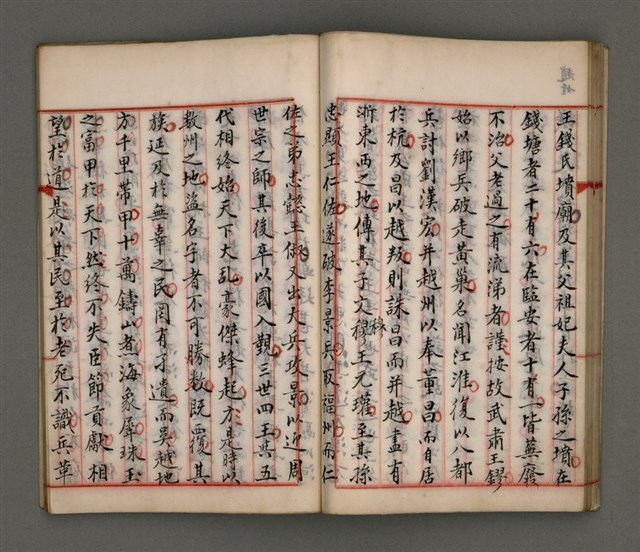 王錢氏墳廟及其父祖妃夫人子孫之墳在
錢塘者二十有六在臨安者十有一皆蕪廢
不治父老過之有流涕者謹按故武肅王鏐
始以鄉兵破走黃巢名聞江淮復以八都
兵討劉漢宏并越州以奉董昌而自居
於杭及昌以越叛則誅昌而并越盡有
浙東西之地傳其子文穆王元瓘至其孫
忠顯王仁佐遂破李景兵取福州而仁
佐之弟忠懿王俶又出大兵攻景以迎周
世宗之師其後卒以國入覲三世四王與五
代相終始天下大亂豪傑蜂起方是時以
數州之地盜名字者不可勝數既覆其
族延及於無辜之民罔有孑遺而吳越地
方千里帶甲十萬鑄山煮海象犀珠玉
之富甲於天下然終不失臣節貢獻相
望於道是以其民至於老死不識兵革